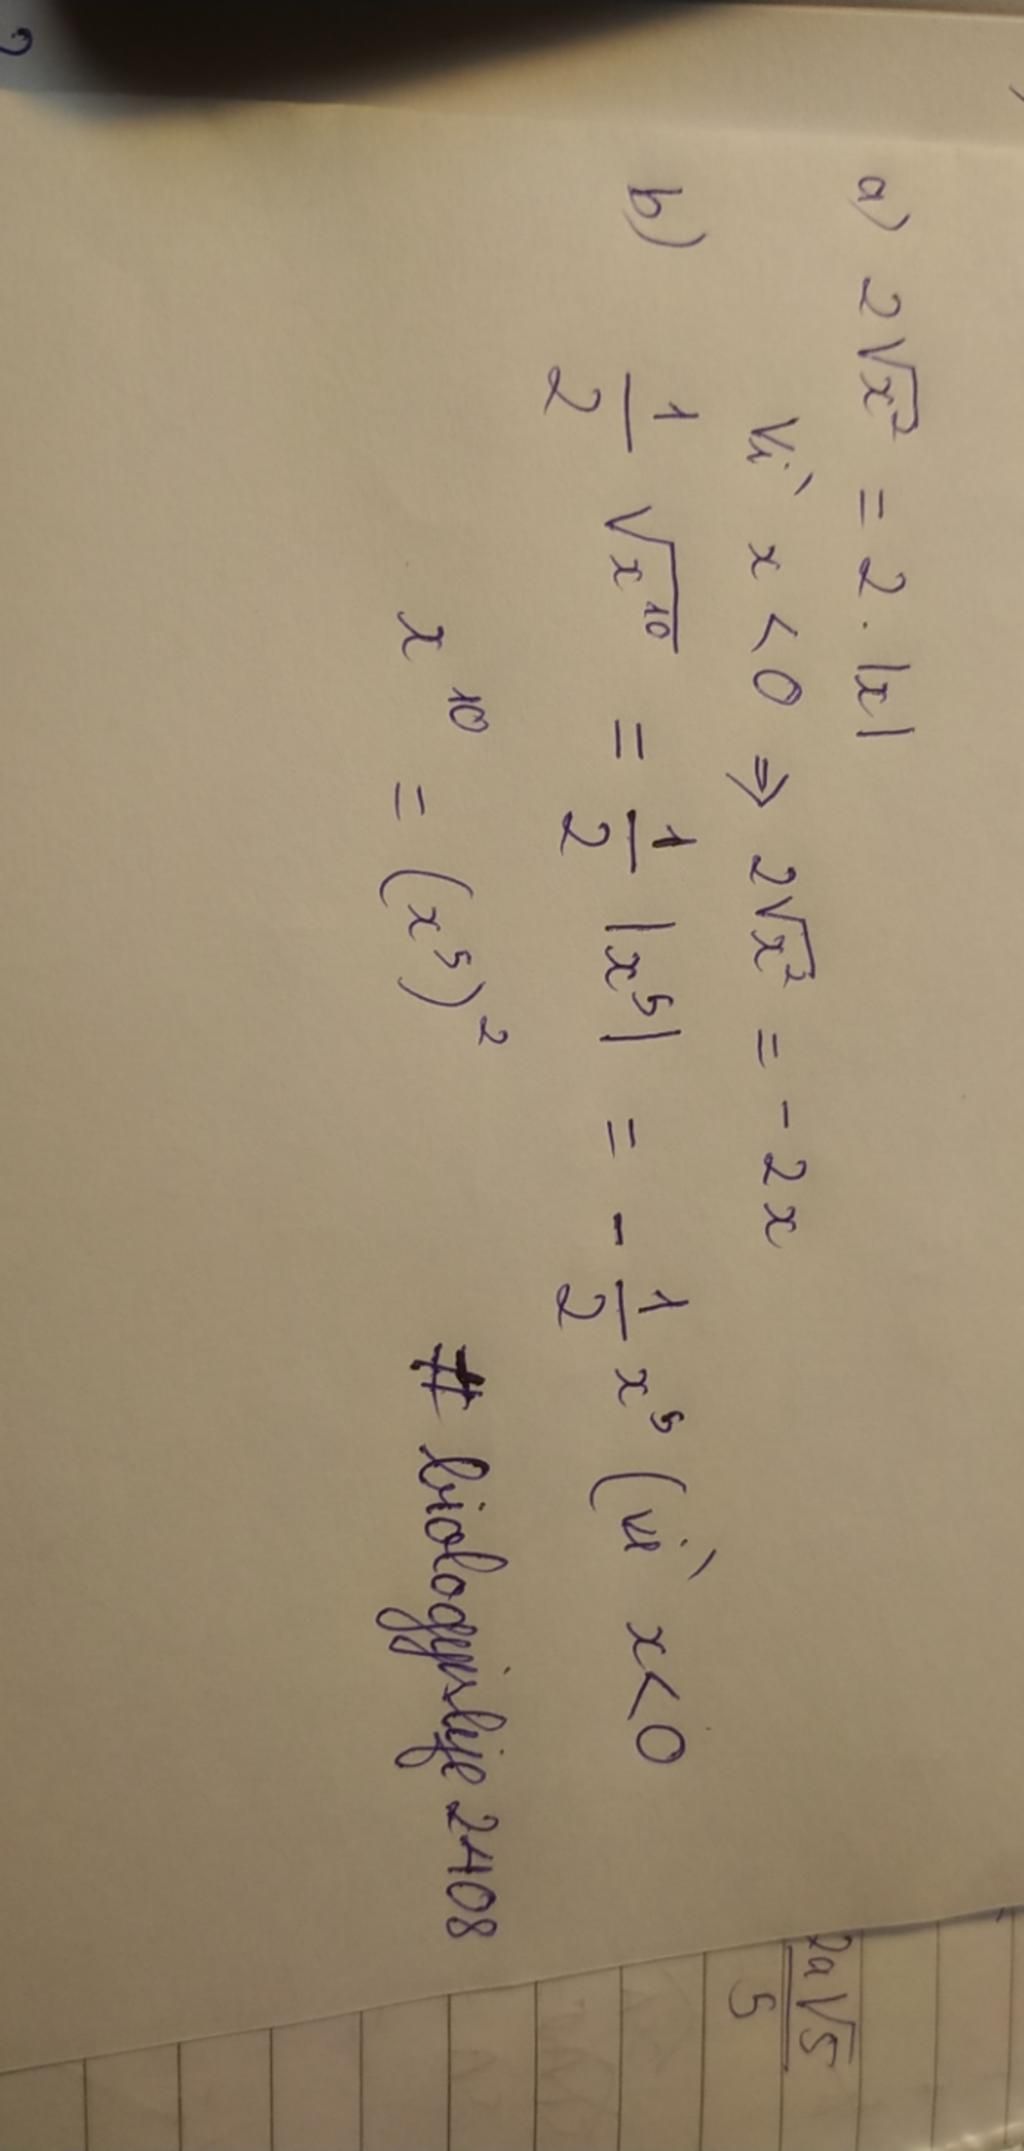 a) 2√x² = 2.|x|
Vì x < 0 ⇒ 2√x² = -2x
b) 1/2 √x¹⁰ = 1/2 |x⁵| = - 1/2 x⁵ (vì x<0
x¹⁰ = (x⁵)²
# biologyislife2408
2a√5/5